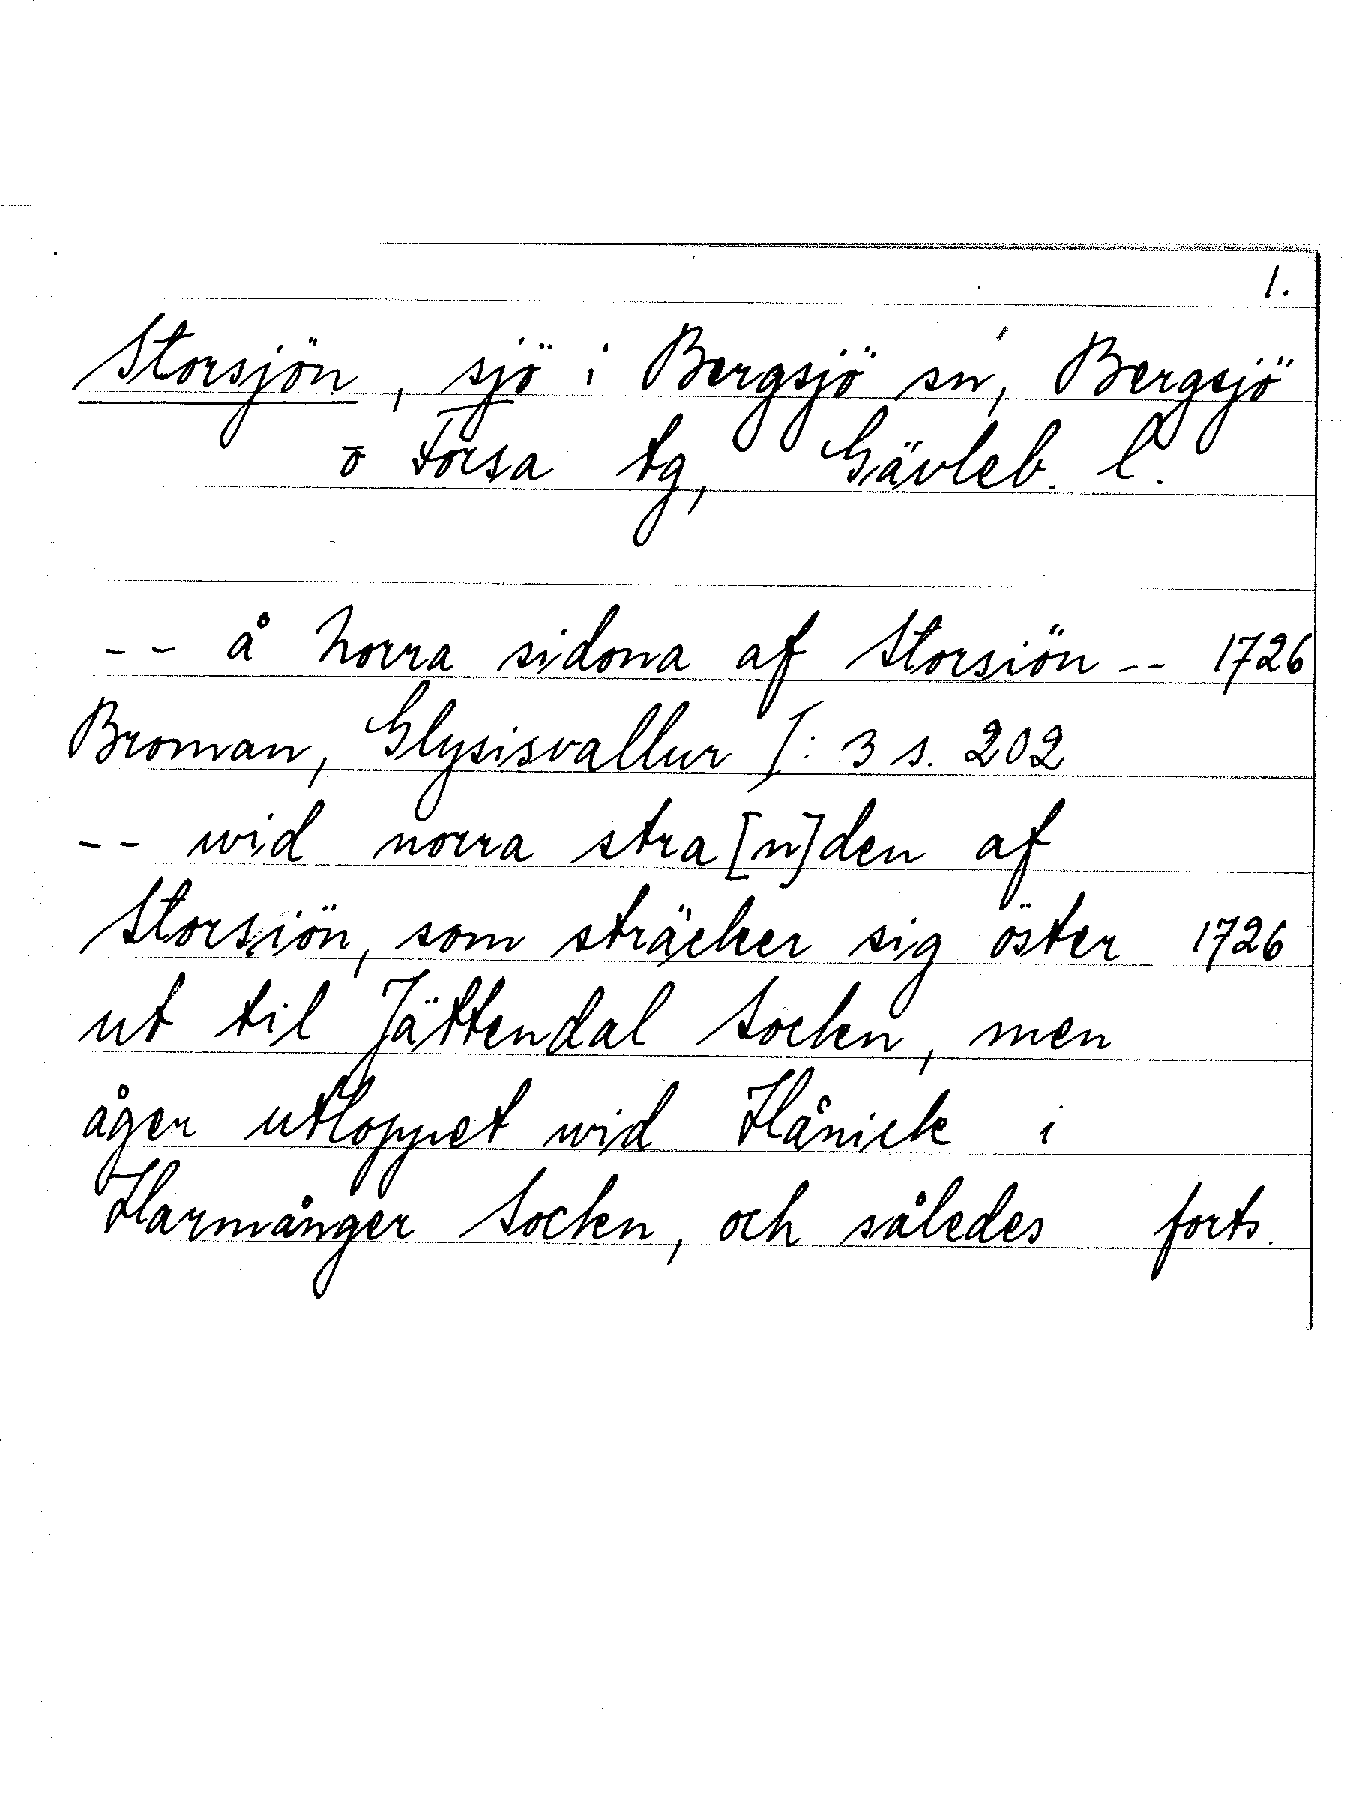 1.
Storsjön, sjö i Bergsjö sn, Bergsjö
o Forsa tg, Gävleb. l.
-- å Norra sidona af Storsiön -- 1726
Broman, Glysisvallur I: 3 s. 202
-- wid norra stra[n]den af
Storsiön, som sträcker sig öster 1726
ut til Jättendal Socken, men
åger utloppet wid Hånick i
Harmånger Socken, och således forts.